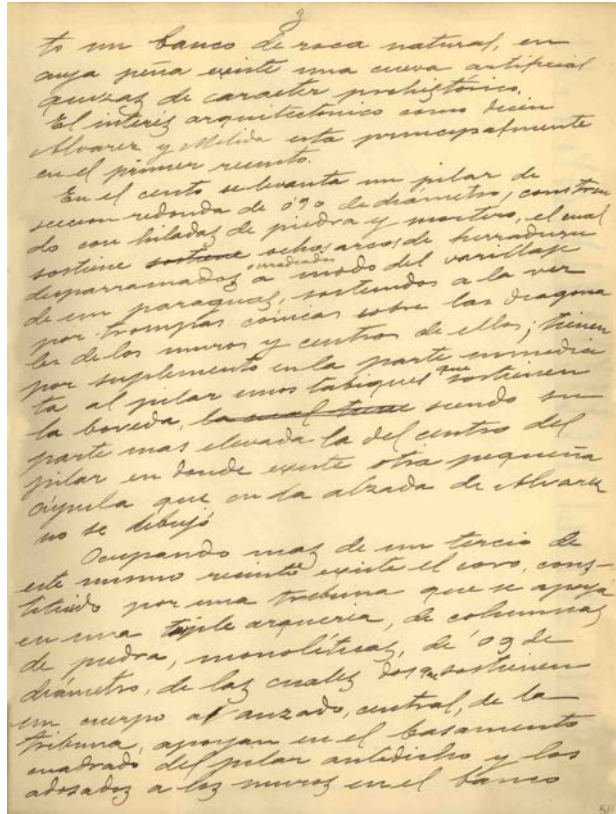 3
to un banco de roca natural, en
cuya peña existe una cueva artificial
quizas de caracter prehistórico.
El interés arquitectonico como dicen
Alvarez y Melida esta principalmente
en el primer recinto.
En el cento se levanta un pilar de
seccion redonda de 0'90 de diámetro, construi
do con hiladas de piedra y mortero, el cual
sostiene sostiene ocho arcos de herradura
desparramados enradiados a modo del varillaje
de un paraguas, sostenidos a la vez
por trompas cónicas sobre las diagona
les de los muros y centros de ellos; tienen
por suplemento en la parte inmedia
ta al pilar unos tabiques que sostienen
la boveda, la cual tiene siendo su
parte mas elevada la del centro del
pilar en donde existe otra pequeña
cúpula que en la alzada de Alvarez
no se dibujó
Ocupando mas de un tercio de
este mismo recinto existe el coro, cons-
tituido por una tribuna que se apoya
en una triple arqueria, de columnas
de piedra, monolíticas, de '09 de
diámetro, de las cuales dos que sostienen
un cuerpo avanzado, central, de la
tribuna, apoyan en el basamento
cuadrado del pilar antedicho y los
adosados a los muros en el banco